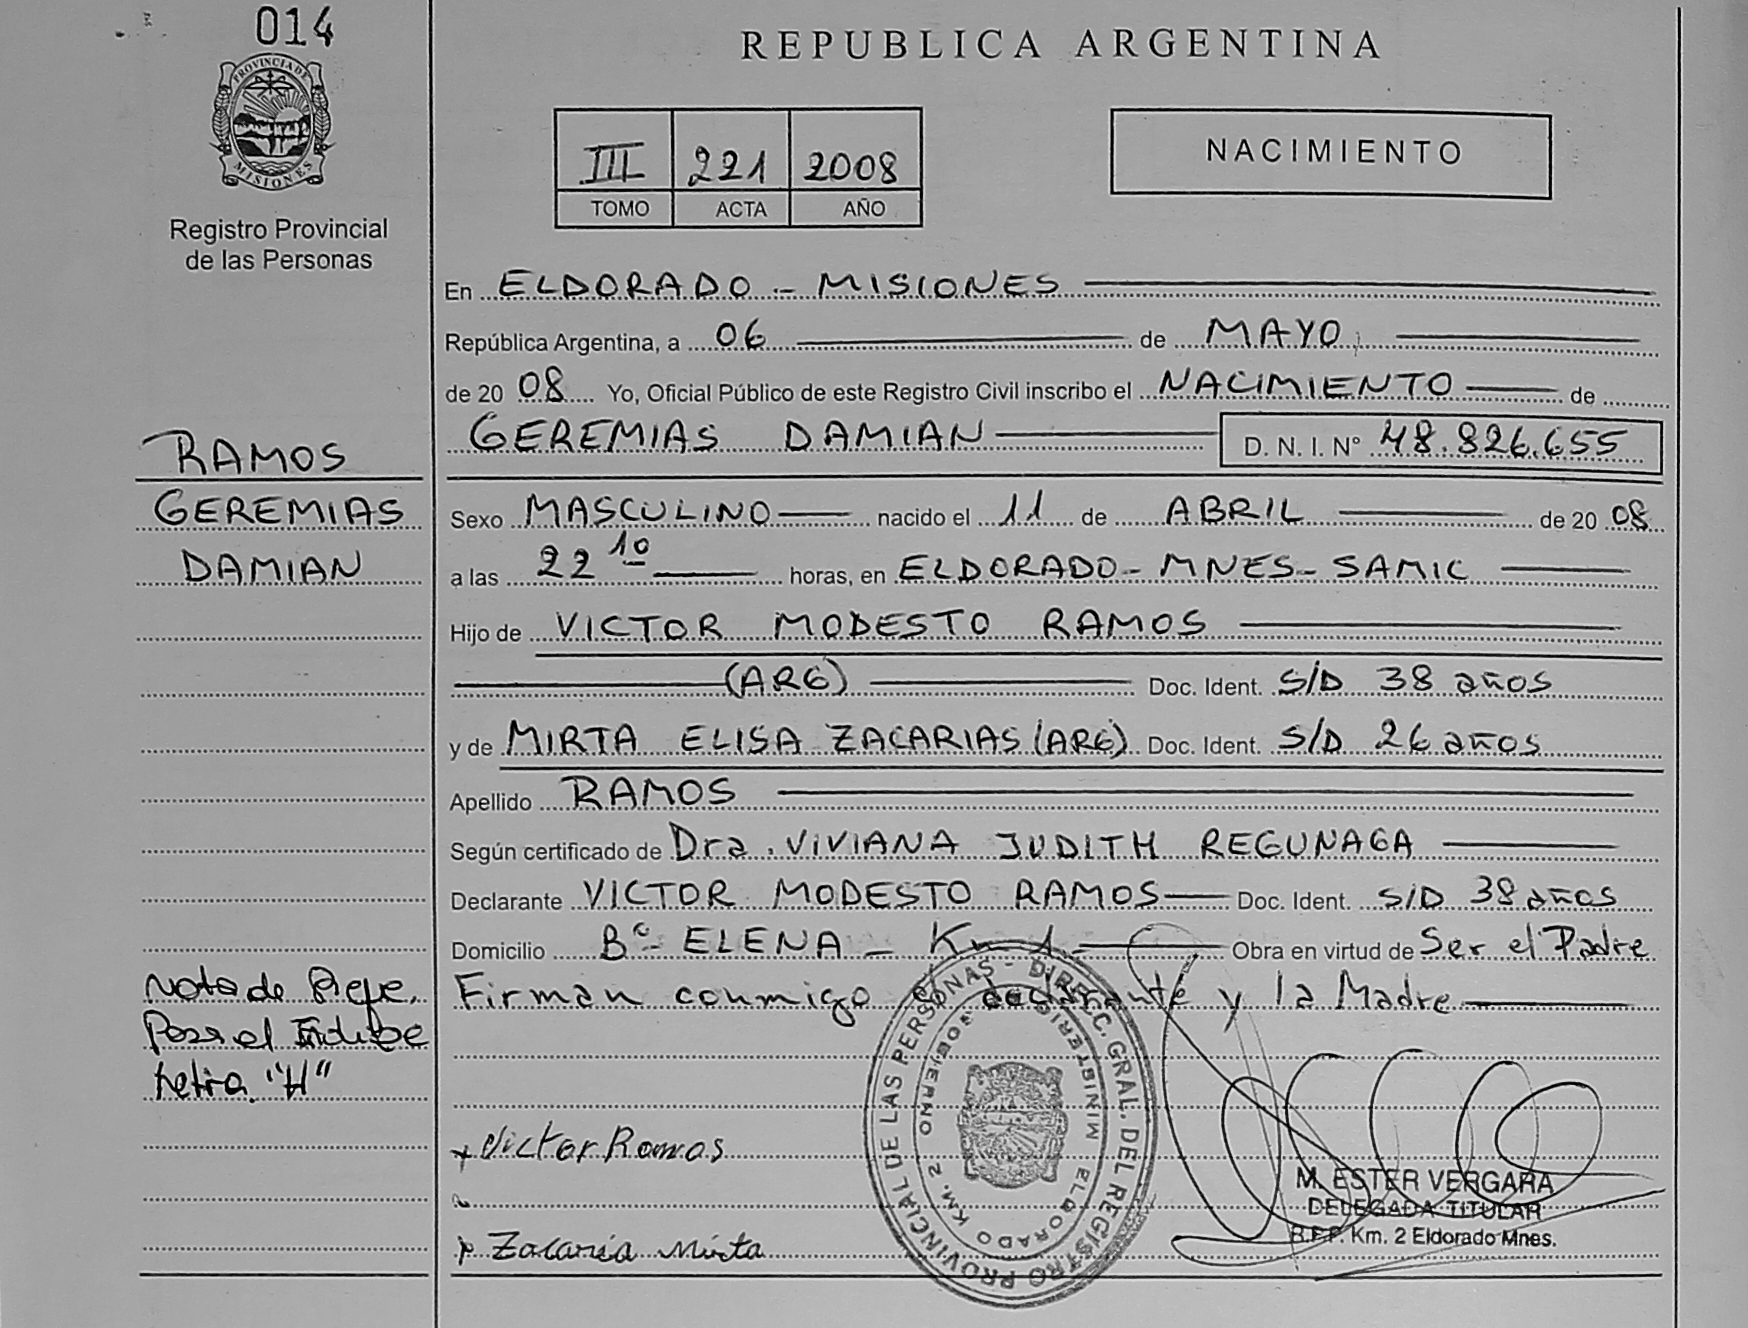 014
PROVINCIA DE
MISIONES
Registro Provincial
de las Personas
REPUBLICA ARGENTINA
III 221 2008
TOMO ACTA AÑO
NACIMIENTO
En ELDORADO - MISIONES
República Argentina, a 06 de MAYO
de 20 08 Yo, Oficial Público de este Registro Civil inscribo el NACIMIENTO de
GEREMIAS DAMIAN D. N. I. Nº 48.826.655
RAMOS
GEREMIAS
DAMIAN
Sexo MASCULINO nacido el 11 de ABRIL de 20 08
a las 22 10 horas, en ELDORADO - MNES - SAMIC
Hijo de VICTOR MODESTO RAMOS
(ARG) Doc. Ident. S/D 38 años
y de MIRTA ELISA ZACARIAS (ARG) Doc. Ident. S/D 26 años
Apellido RAMOS
Según certificado de Dra. VIVIANA JUDITH REGUNAGA
Declarante VICTOR MODESTO RAMOS Doc. Ident. S/D 38 años
Domicilio Bº ELENA - Km 1 - Obra en virtud de Ser el Padre
Firman conmigo el declarante y la Madre
Nota de
"H"
Victor Ramos
Zacaria Mirta
DIREC. GRAL. DEL REGISTRO PROVINCIAL DE LAS PERSONAS -
MINISTERIO GOBIERNO
ELDORADO KM. 2
M. ESTER VERGARA
DELEGADA TITULAR
R.P.P. Km. 2 Eldorado Mnes.